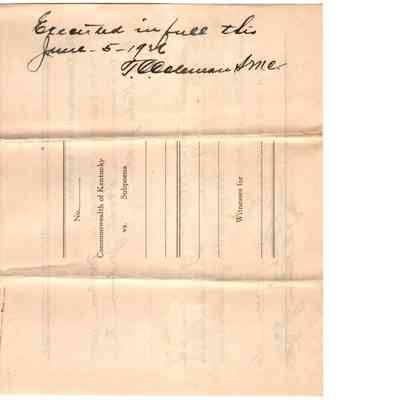 Executed in full this
June - 5 - 1926
T. C. Coleman S.M.C.
No.
Commonwealth of Kentucky
vs. Subpoena
Witnesses for